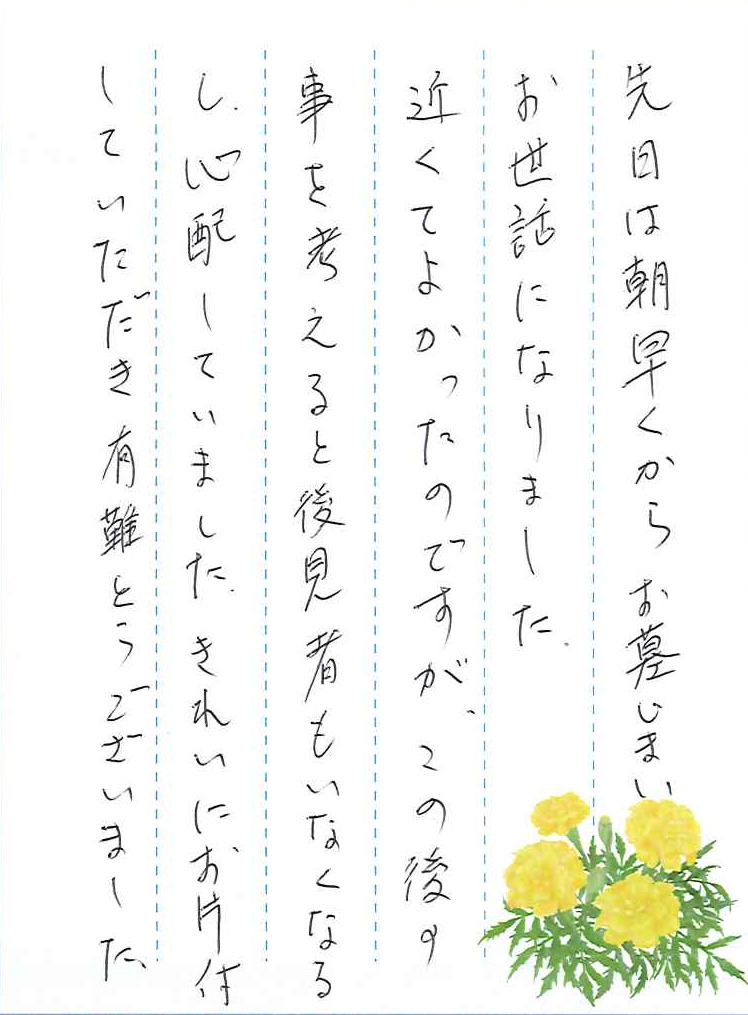 先日は朝早くから お墓じまい
お世話になりました.
近くてよかったのですが、この後の
事を考えると後見者もいなくなる
し、心配していました. きれいにお片付
していただき有難とうございました、